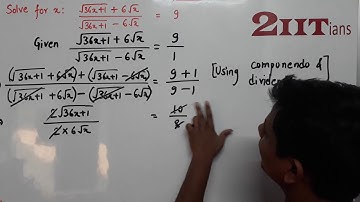 Solve for x: (√36x+1 + 6√x)/(√36x+1 − 6√x) = 9
2IITians
Given (√36x+1 + 6√x)/(√36x+1 − 6√x) = 9/1
((√36x+1 + 6√x) + (√36x+1 − 6√x))/((√36x+1 + 6√x) − (√36x+1 − 6√x)) = (9+1)/(9−1) [Using componendo &
2√36x+1/2×6√x = 10/8